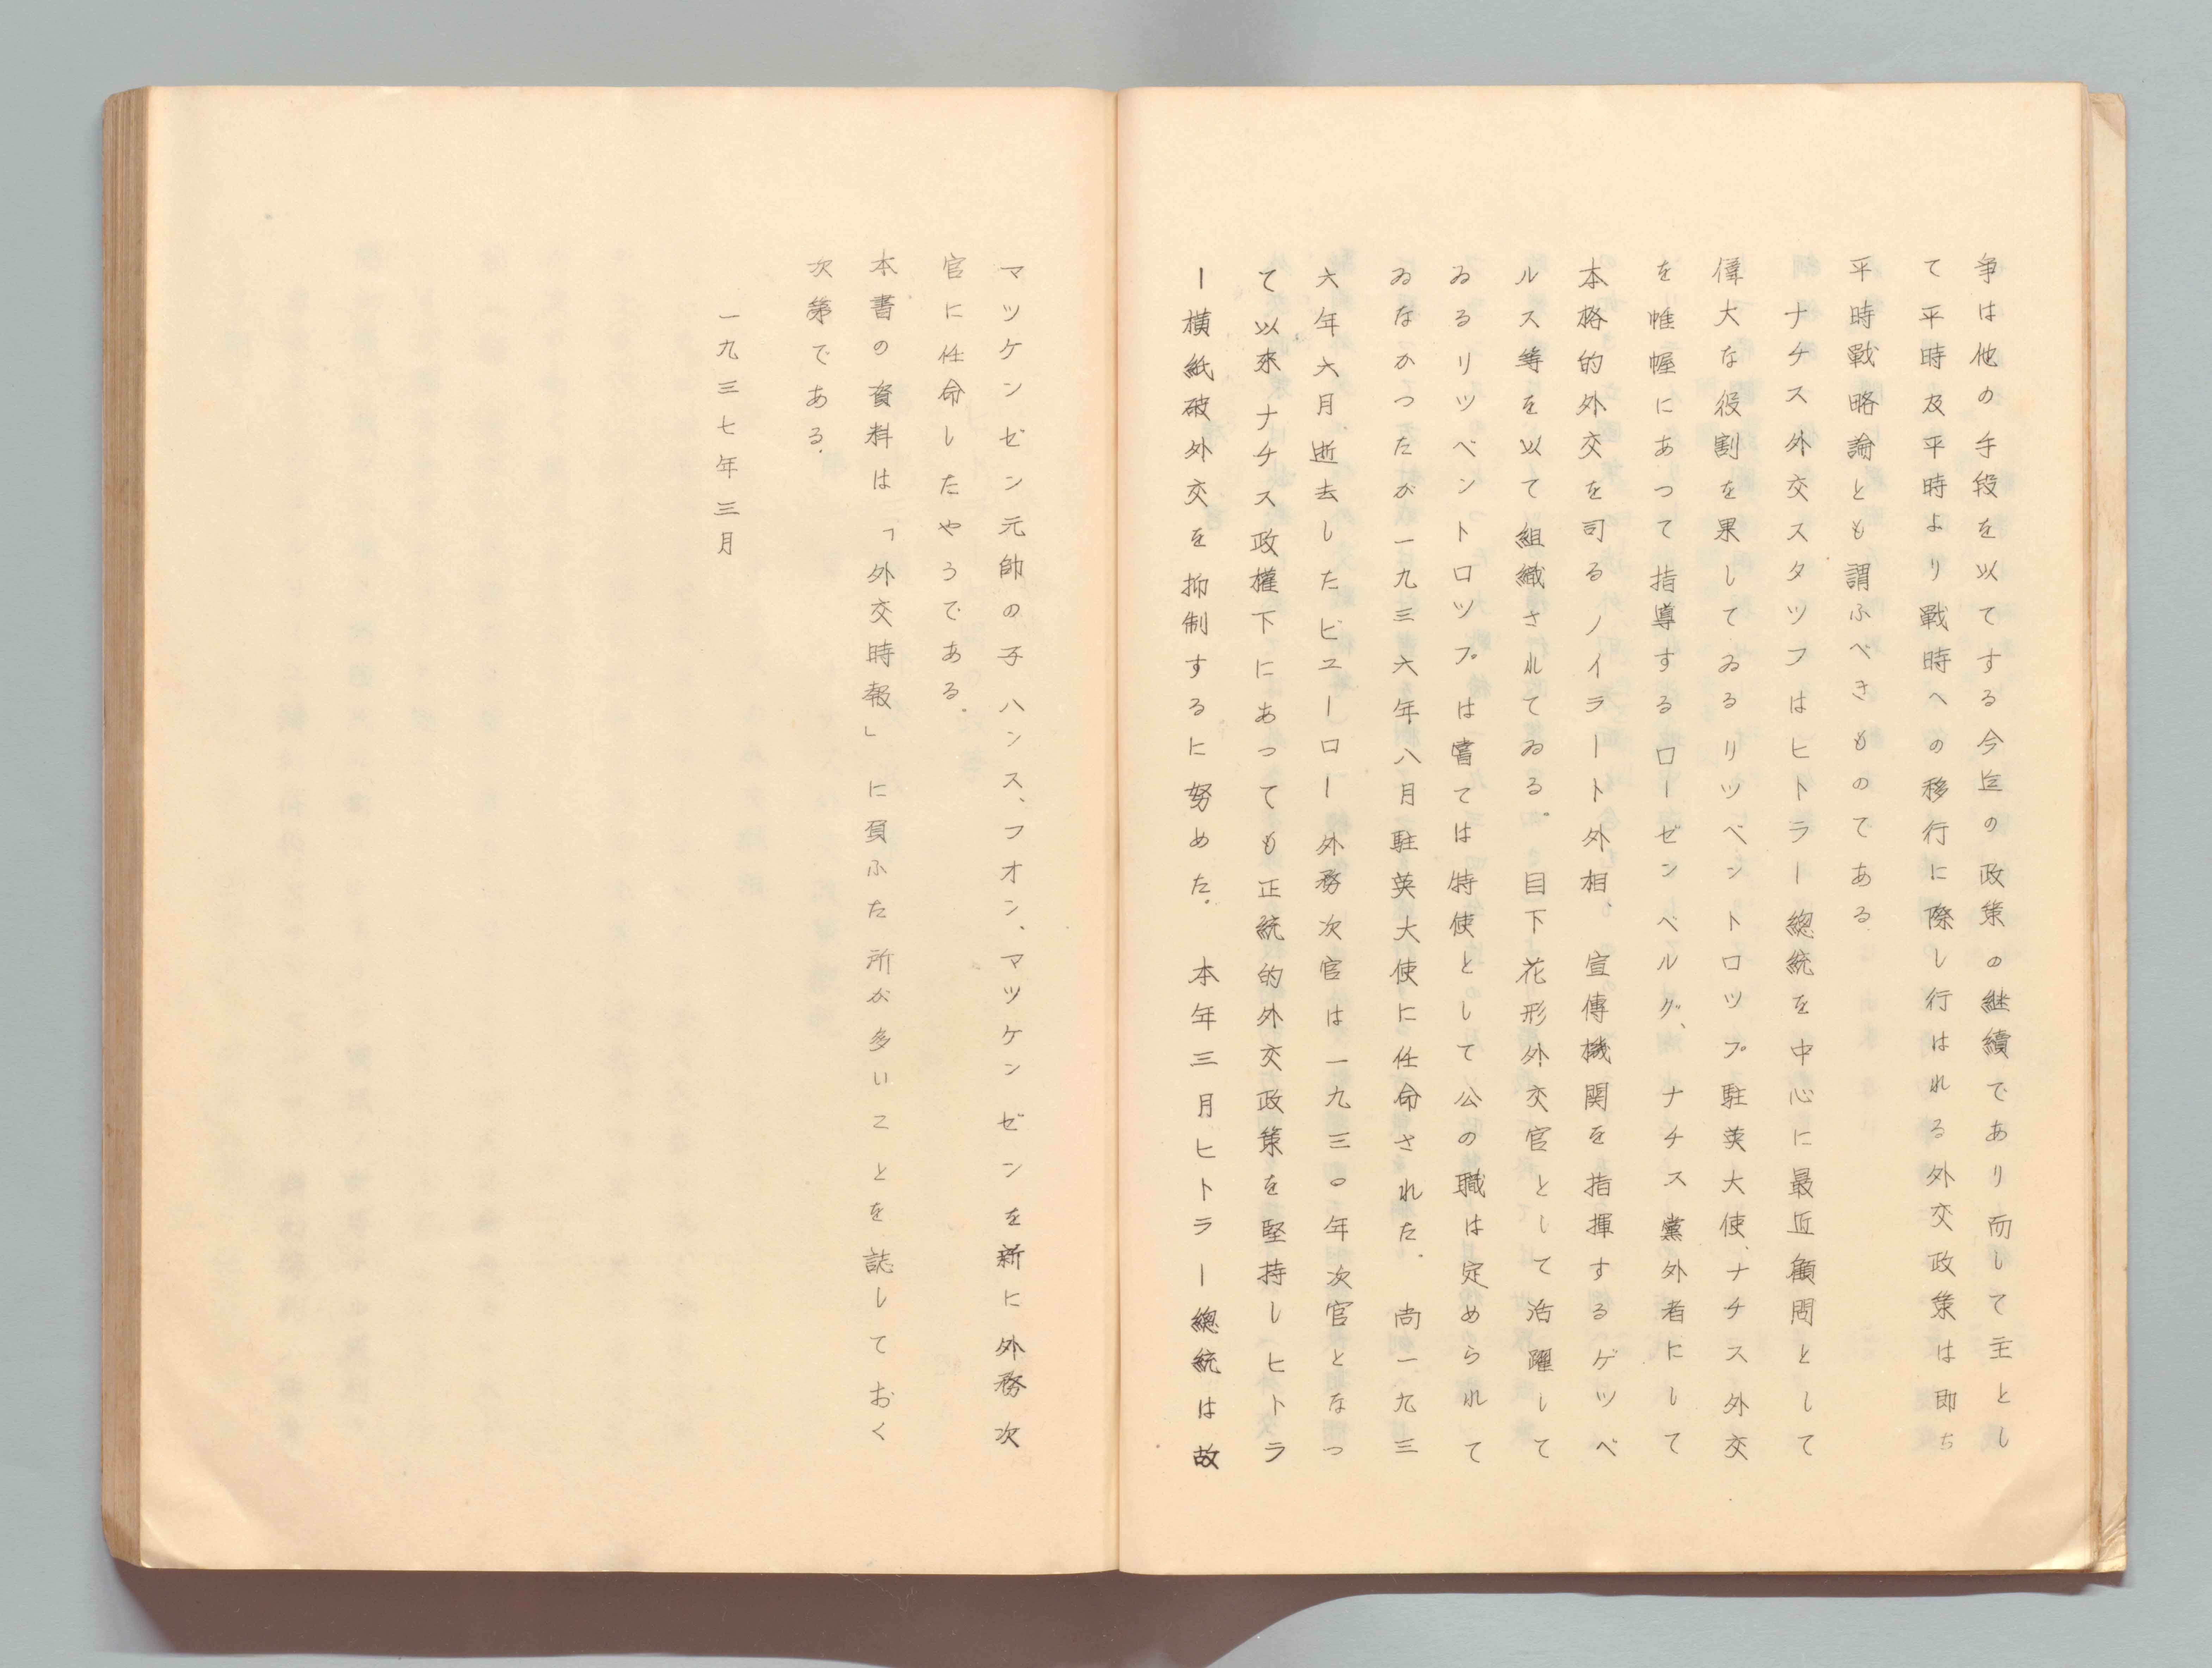 争は他の手段を以てする今迄の政策の継續であり而して主とし
て平時及平時より戰時への移行に際し行はれる外交政策は即ち
平時戰略論とも謂ふべきものである
ナチス外交スタツフはヒトラー總統を中心に最近顧問として
偉大な役割を果してゐるリツベントロツプ駐英大使、ナチス外交
を帷幄にあつて指導するローゼンベルグ、ナチス黨外者にして
本格的外交を司るノイラート外相、宣傳機関を指揮するゲツベ
ルス等を以て組織されてゐる。目下花形外交官として活躍して
ゐるリツベントロツプは嘗ては特使として公の職は定められて
ゐなかつたが一九三六年八月駐英大使に任命された。尚一九三
六年六月逝去したビユーロー外務次官は一九三〇年次官となつ
て以來ナチス政權下にあつても正統的外交政策を堅持しヒトラ
ー横紙破外交を抑制するに努めた。本年三月ヒトラー總統は故
マツケンゼン元帥の子ハンス、フオン、マツケンゼンを新に外務次
官に任命したやうである。
本書の資料は「外交時報」に負ふた所が多いことを誌しておく
次第である。
一九三七年三月